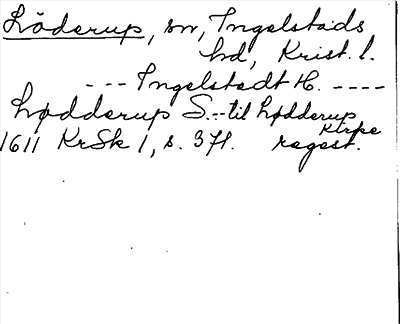 Löderup, sn, Ingelstads
hd, Krist. l.
--- Ingelstedt H. ----
Lødderup S.--til Lødderup
Kirke
1611 KrSk 1, s. 371. regest.